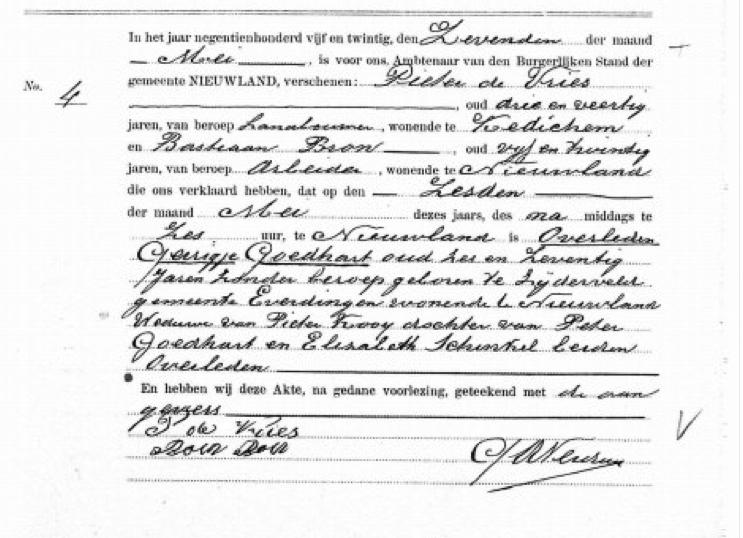 In het jaar negentienhonderd vijf en twintig, den Zevenden der maand
Mei, is voor ons, Ambtenaar van den Burgerlijken Stand der
No. 4 gemeente NIEUWLAND, verschenen: Pieter de Vries
, oud drie en veertig
jaren, van beroep Landbouwer, wonende te Kedichem
en Bastiaan Bron, oud vijf en twintig
jaren, van beroep Arbeider, wonende te Nieuwland
die ons verklaard hebben, dat op den Zesden
der maand Mei dezes jaars, des na middags te
Zes uur, te Nieuwland is Overleden
Geertje Goedhart oud zes en zeventig
Jaren zonder beroep geboren te Zijderveld
gemeente Everdingen wonende te Nieuwland
Weduwe van Pieter Kooy dochter van Peter
Goedhart en Elizabeth Schinkel beiden
Overleden
En hebben wij deze Akte, na gedane voorlezing, geteekend met de aan
gevers
P de Vries